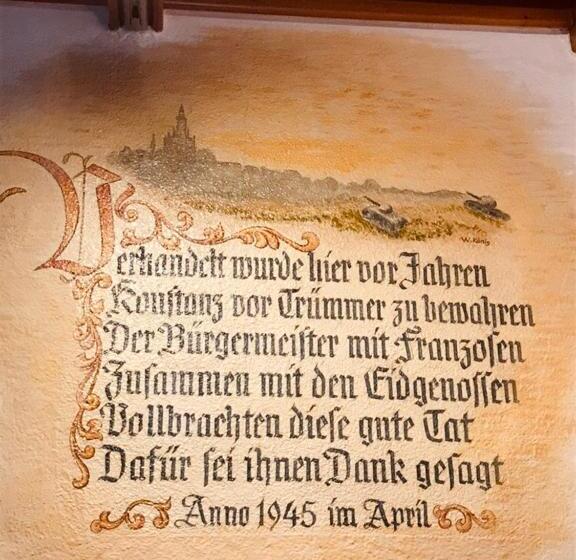 W. König
Verhandelt wurde hier vor Jahren
Konstanz vor Trümmer zu bewahren
Der Bürgermeister mit Franzosen
Zusammen mit den Eidgenossen
Vollbrachten diese gute Tat
Dafür sei ihnen Dank gesagt
Anno 1945 im April